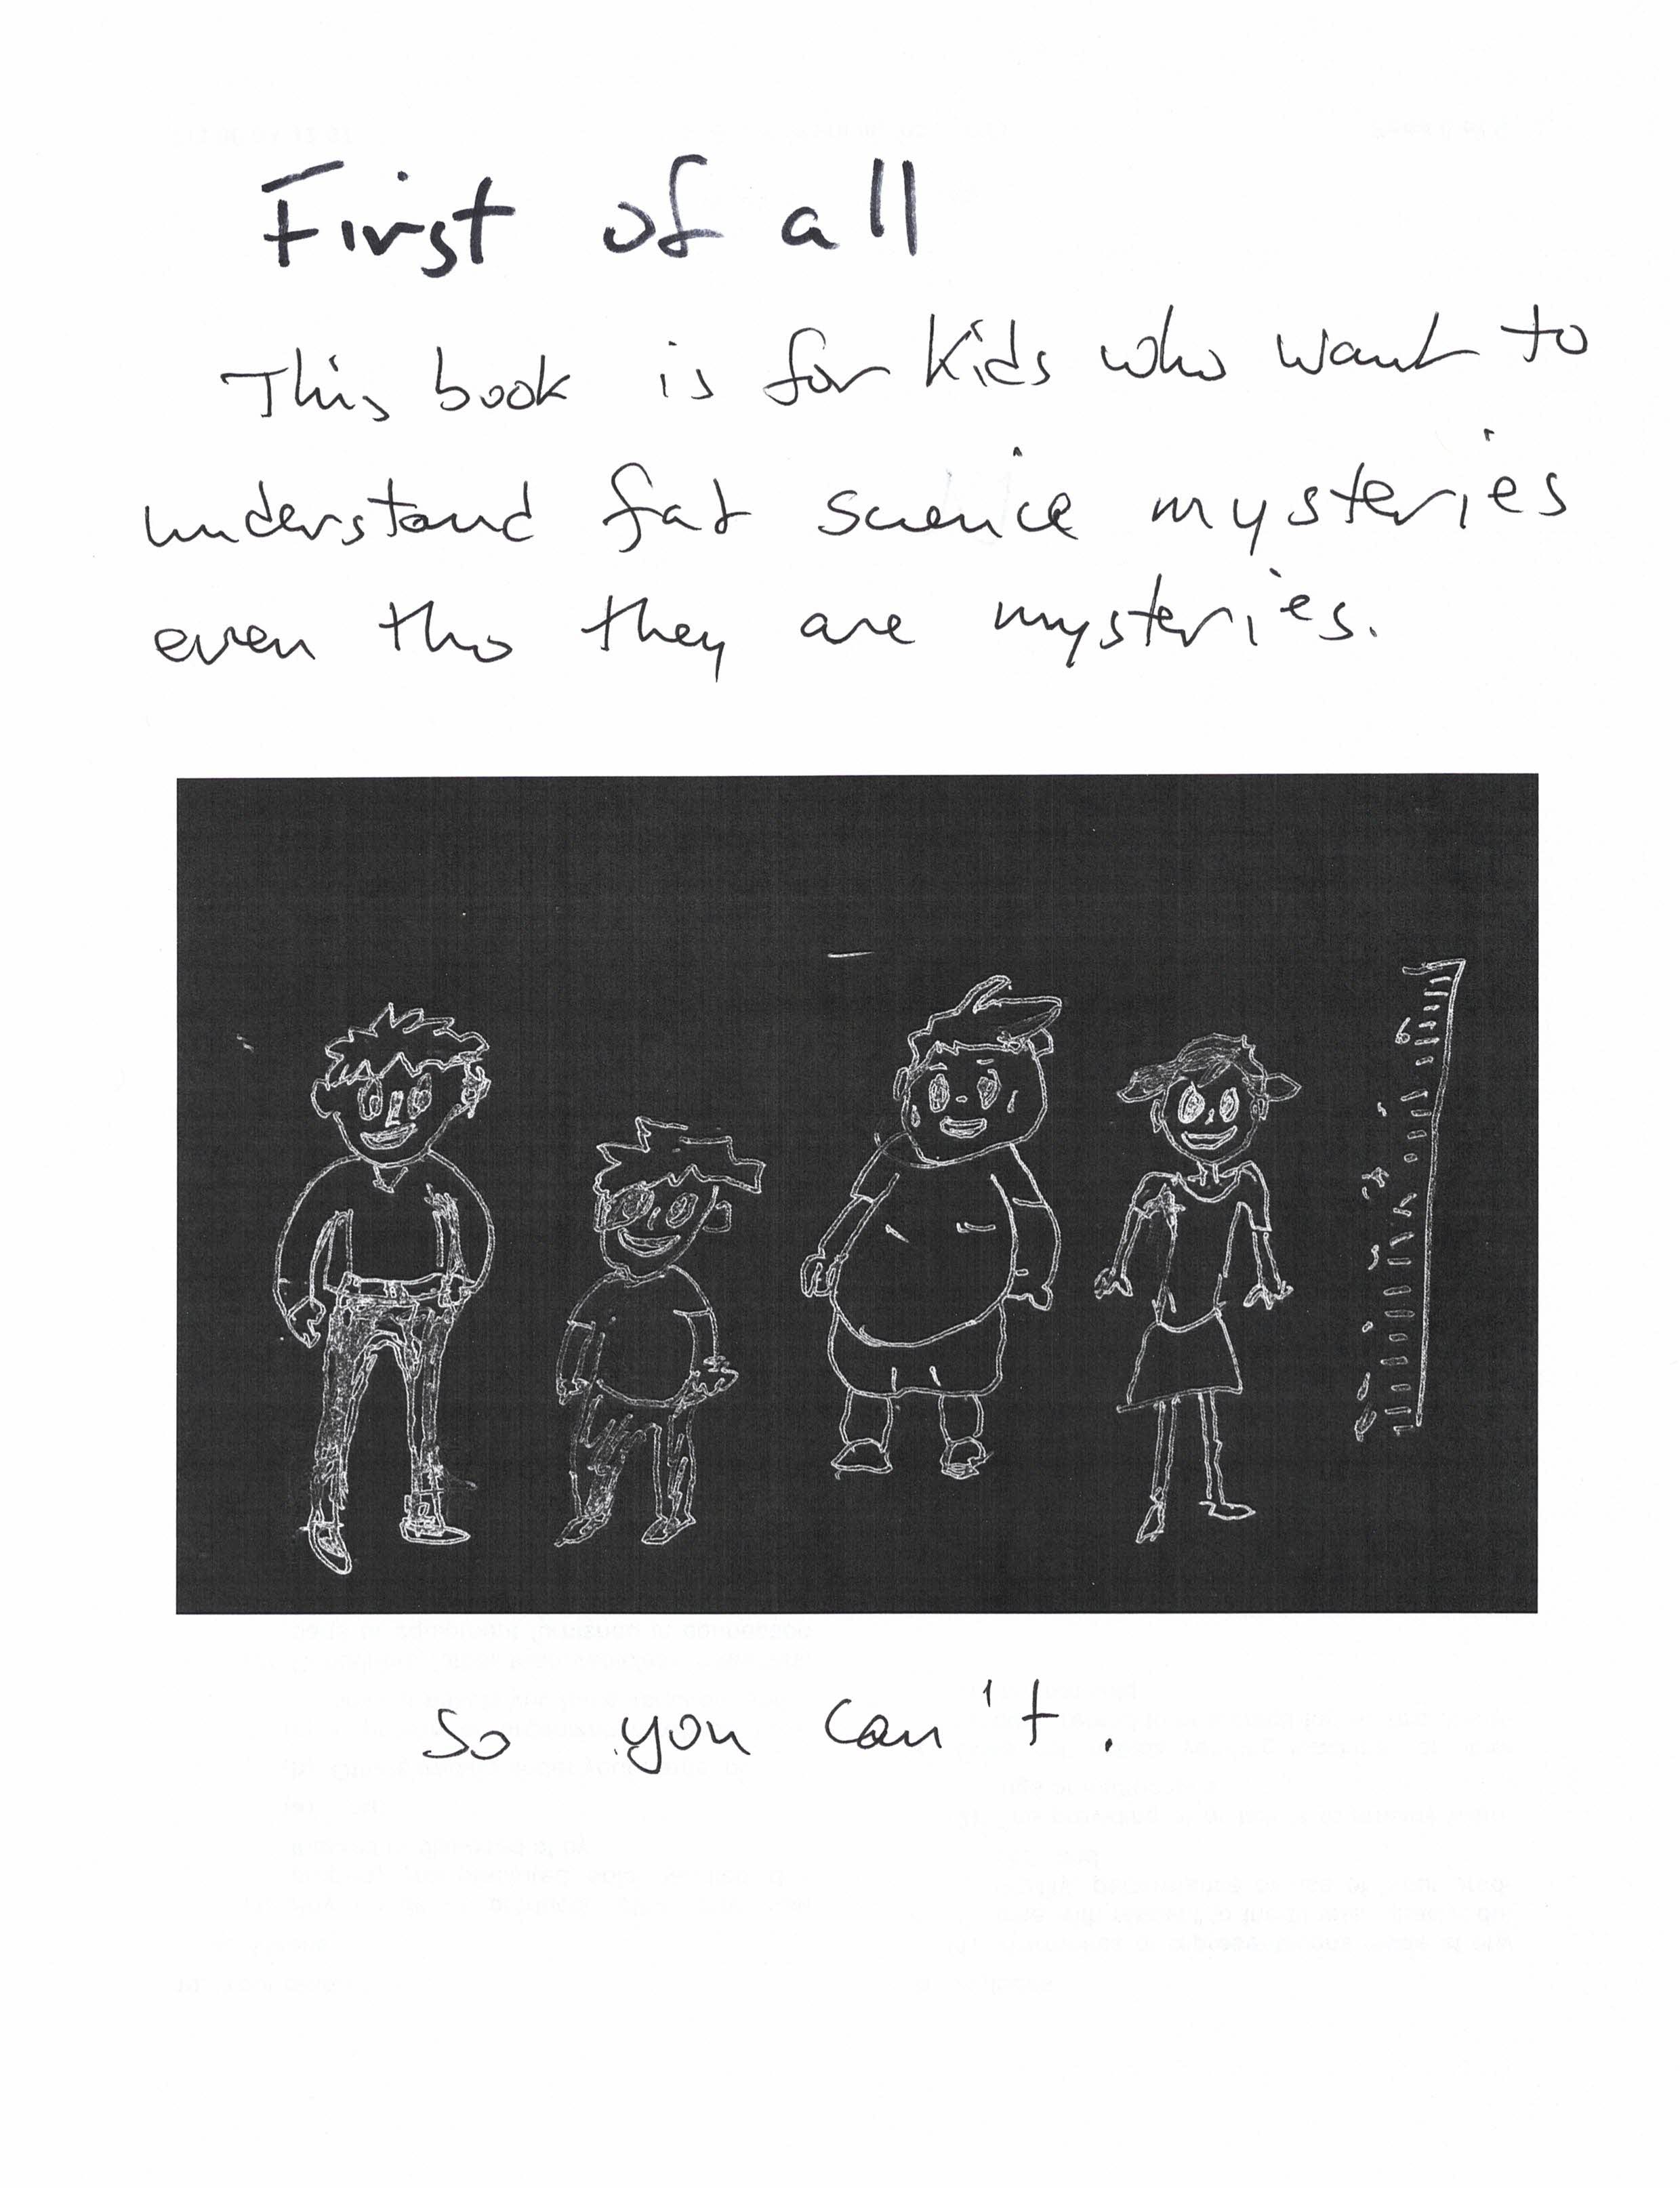 First of all
This book is for kids who want to
understand fat science mysteries
even tho they are mysteries.
6
So you can't.